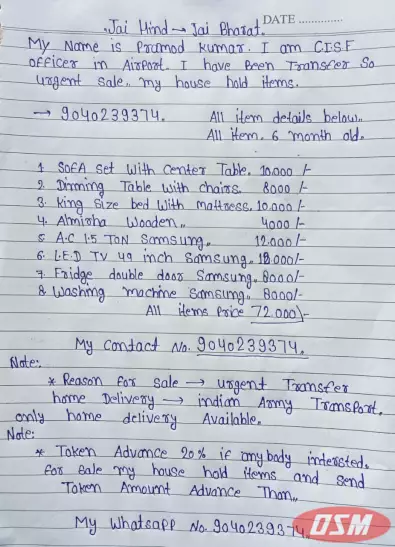 DATE ..............
Jai Hind → Jai Bharat.
My Name is Pramod Kumar. I am C.I.S.F
officer in Airport. I have Been Transfer So
urgent Sale.. my house hold items.
→ 9040239374.
All item details below..
All item. 6 month old.
1. SOFA Set With Center Table. 10.000 /-
2. Dinning Table With chairs. 8000 /-
3. King Size bed With mattress. 10.000 /-
4. Almirha Wooden.. 4000 /-
5. A.C 1.5 TON Samsung. 12.000 /-
6. L.E.D TV 49 inch Samsung. 12.000 /-
7. Fridge double door Samsung. 8000/-
8. Washing machine Samsung. 8000/-
All items Price 72.000/-
My Contact No. 9040239374.
Note:.
* Reason for Sale → urgent Transfer
home Delivery → indian Army Transport.
only home delivery Available.
Note:
* Token Advance 20% if any body intersted.
for Sale my house hold items and Send
Token Amount Advance Than..
My WhatsApp No. 9040239374.
OSM